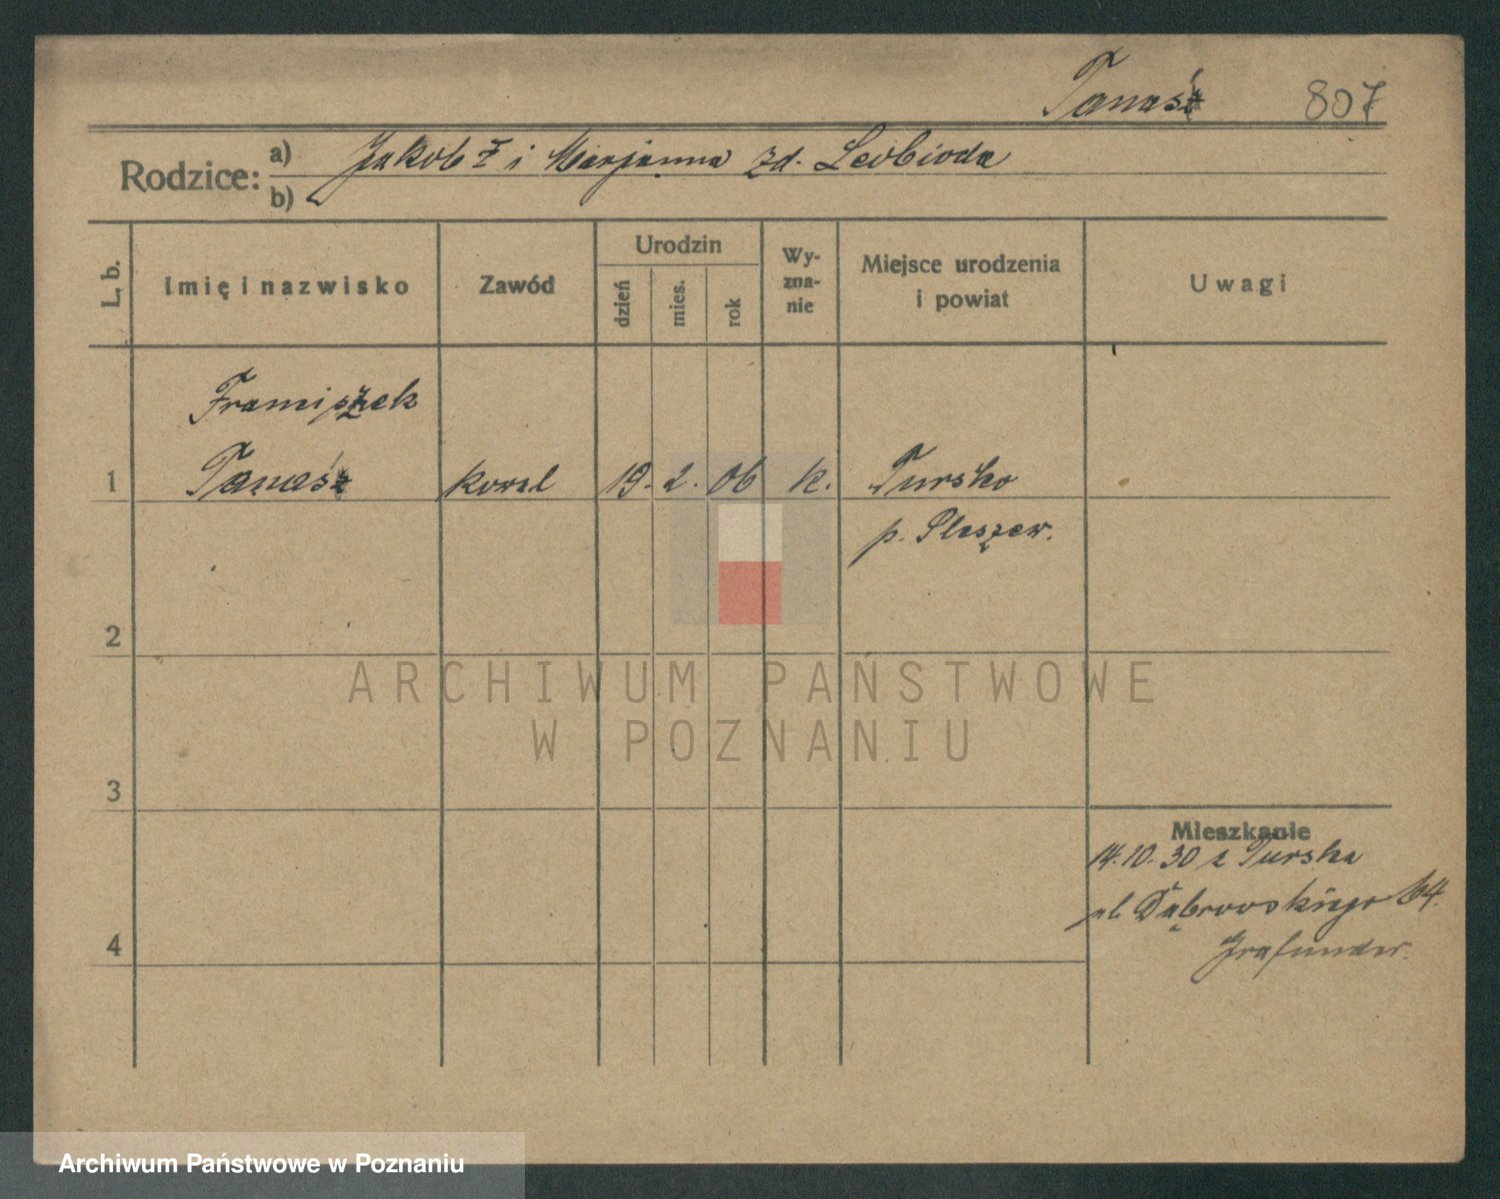 Tanaś 807
Rodzice: a) Jakob Ł i Marjanna zd. Leibioda
b)
L. b. Imię i nazwisko Zawód Urodzin dzień mies. rok Wyznanie Miejsce urodzenia i powiat Uwagi
Franciszek
1 Tanaś kowal 19. 2. 06 k. Tursko
p. Pleszew.
2
3
Mieszkanie
14.10.30 z Turska
ul. Dąbrowskiego 64.
4
Grafunder.
ARCHIWUM PAŃSTWOWE
W POZNANIU
Archiwum Państwowe w Poznaniu